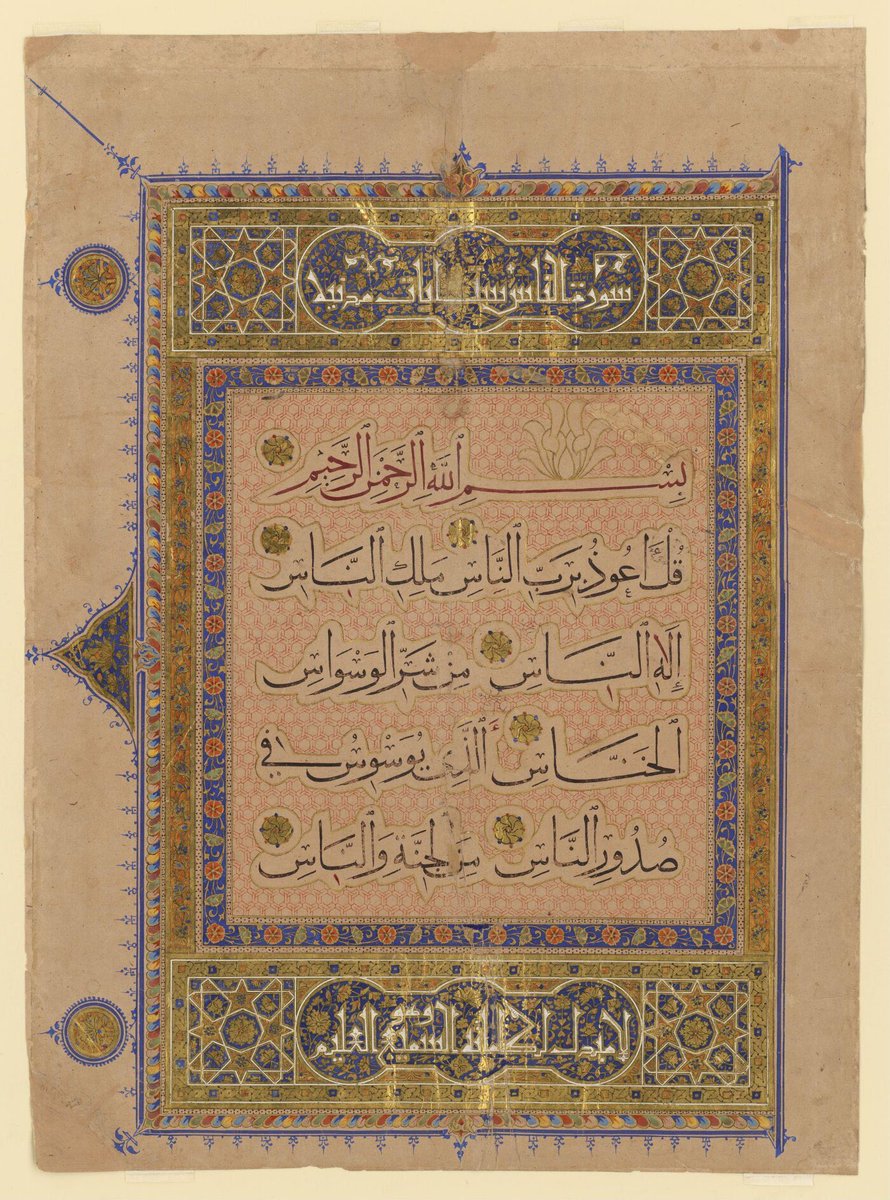 سورة الناس ست ايات مدنية
بِسْمِ اللَّهِ الرَّحْمٰنِ الرَّحِيمِ
قُلْ أَعُوذُ بِرَبِّ النَّاسِ مَلِكِ النَّاسِ
إِلٰهِ النَّاسِ مِنْ شَرِّ الْوَسْوَاسِ
الْخَنَّاسِ أَلَّذِي يُوَسْوِسُ فِي
صُدُورِ النَّاسِ مِنَ الْجِنَّةِ وَالنَّاسِ
لا مبدل لكلماته وهو السميع العليم